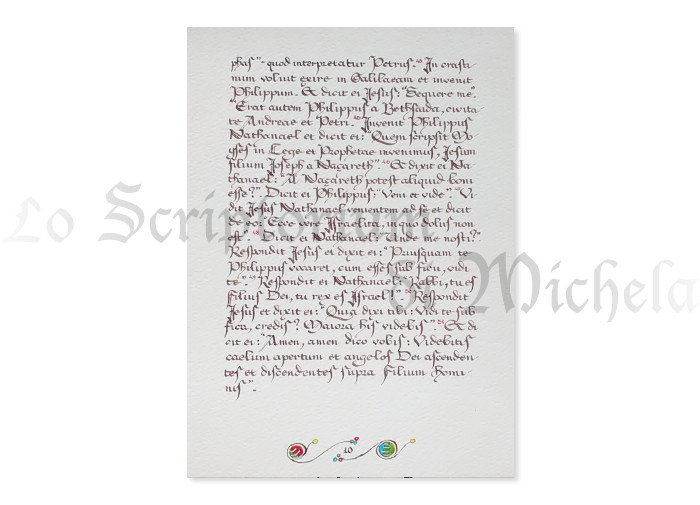 phas"- quod interpretatur Petrus. 43 In crasti
num voluit exire in Galilaeam et invenit
Philippum. Et dicit ei Jesus: "Sequere me".
44 Erat autem Philippus a Bethsaida, civita
te Andreae et Petri. 45 Invenit Philippus
Nathanael et dicit ei: "Quem scripsit Mo
yses in Lege et Prophetae invenimus, Jesum
filium Joseph a Nazareth". 46 Et dixit ei Na
thanael: "A Nazareth potest aliquid boni
esse?". Dicit ei Philippus: "Veni et vide". 47 Vi
dit Jesus Nathanael venientem ad se et dicit
de eo: "Ecce vere Israelita, in quo dolus non
est". 48 Dicit ei Nathanael: "Unde me nosti?".
Respondit Jesus et dixit ei: "Priusquam te
Philippus vocaret, cum esses sub ficu, vidi
te". 49 Respondit ei Nathanael: "Rabbi, tu es
Filius Dei, tu rex es Israel!". 50 Respondit
Jesus et dixit ei: "Quia dixi tibi: Vidi te sub
fica, credis? Maiora his videbis". 51 Et di
cit ei: "Amen, amen dico vobis: Videbitis
caelum apertum et angelos Dei ascenden
tes et discendentes supra Filium homi
nis".
10
Lo Scriptorium
di Michela